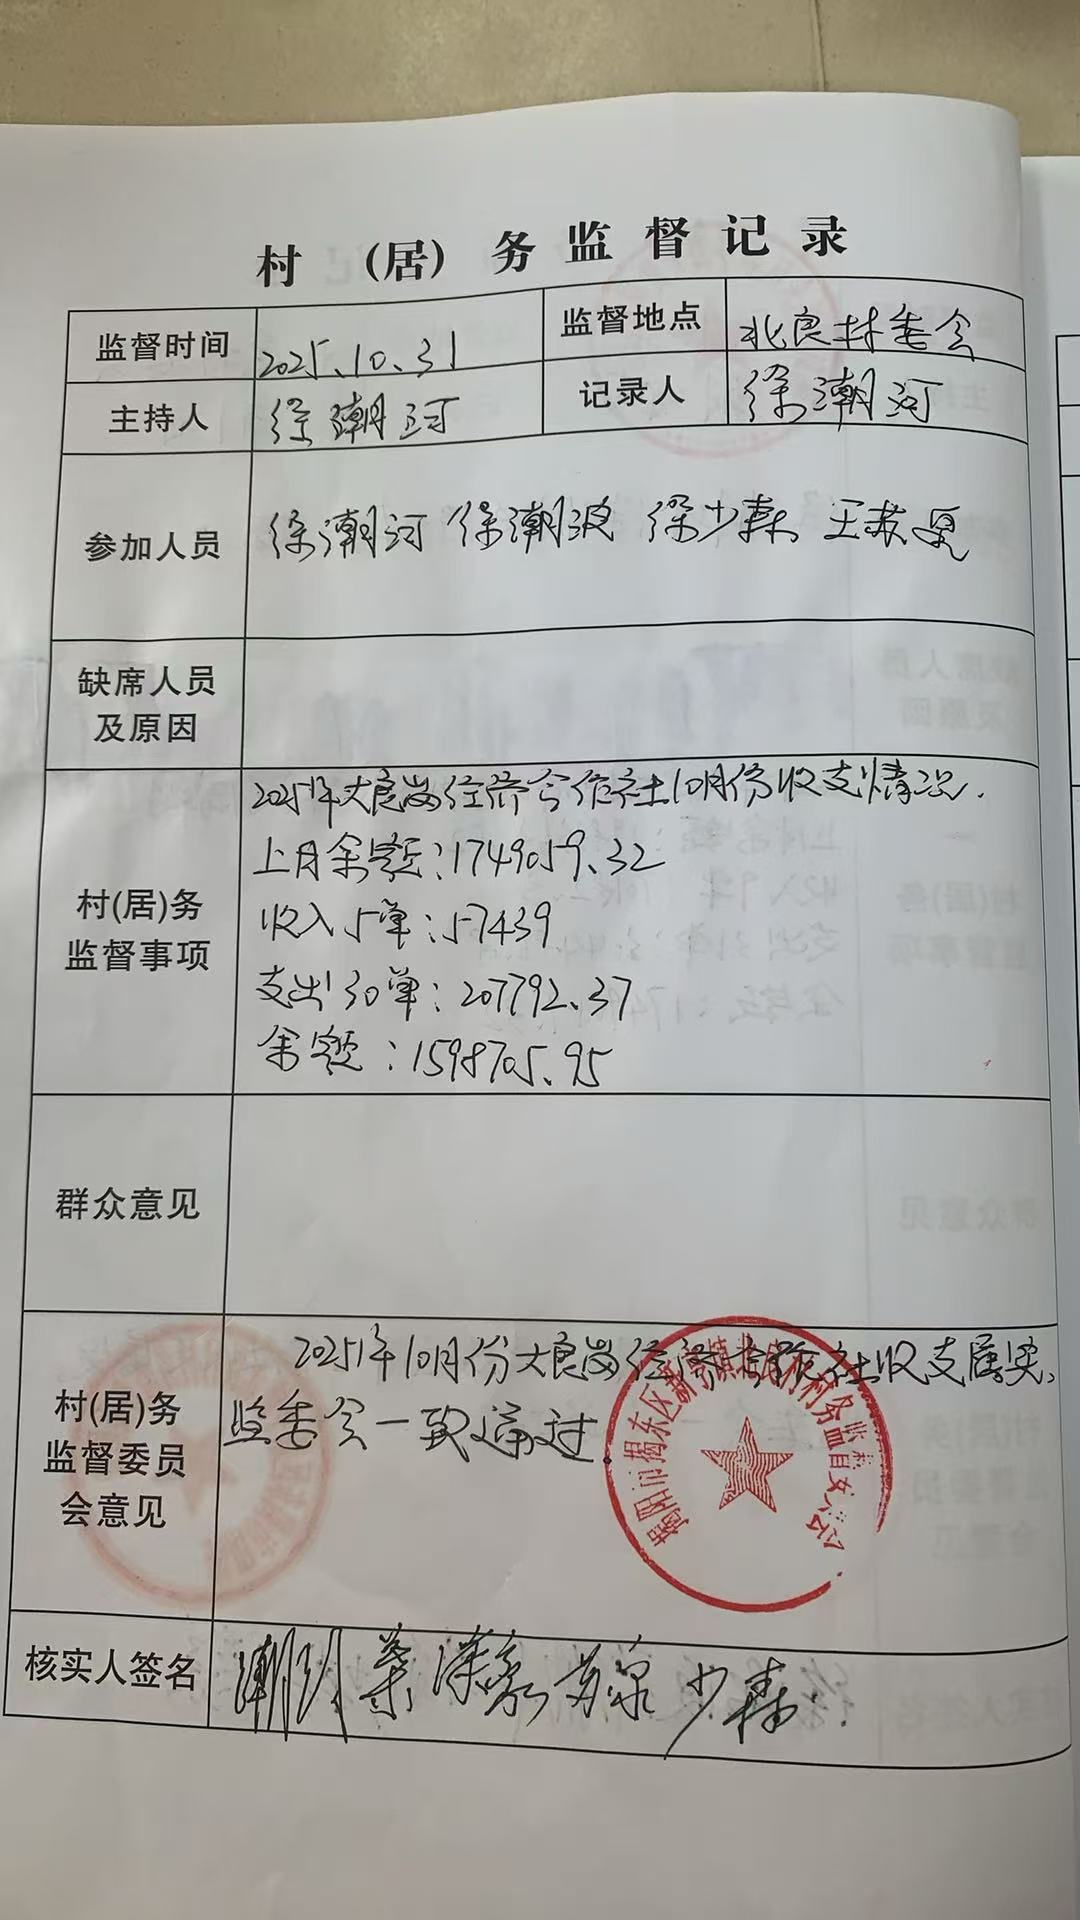 村 (居) 务监督记录
监督时间 2025.10.31 监督地点 北良村委会
主持人 徐潮河 记录人 徐潮河
参加人员 徐潮河 徐潮波 徐少森 王苏
缺席人员
及原因
村(居)务
监督事项
2025年大良岗经济合作社10月份收支情况.
上月余额:1749059.32
收入5单:57439
支出30单:207792.37
余额:1598705.95
群众意见
村(居)务
监督委员
会意见
2025年10月份大良岗经济合作社收支属实,
监委会一致通过.
揭阳市揭东区 镇北良村村务监督委员会
核实人签名 少森